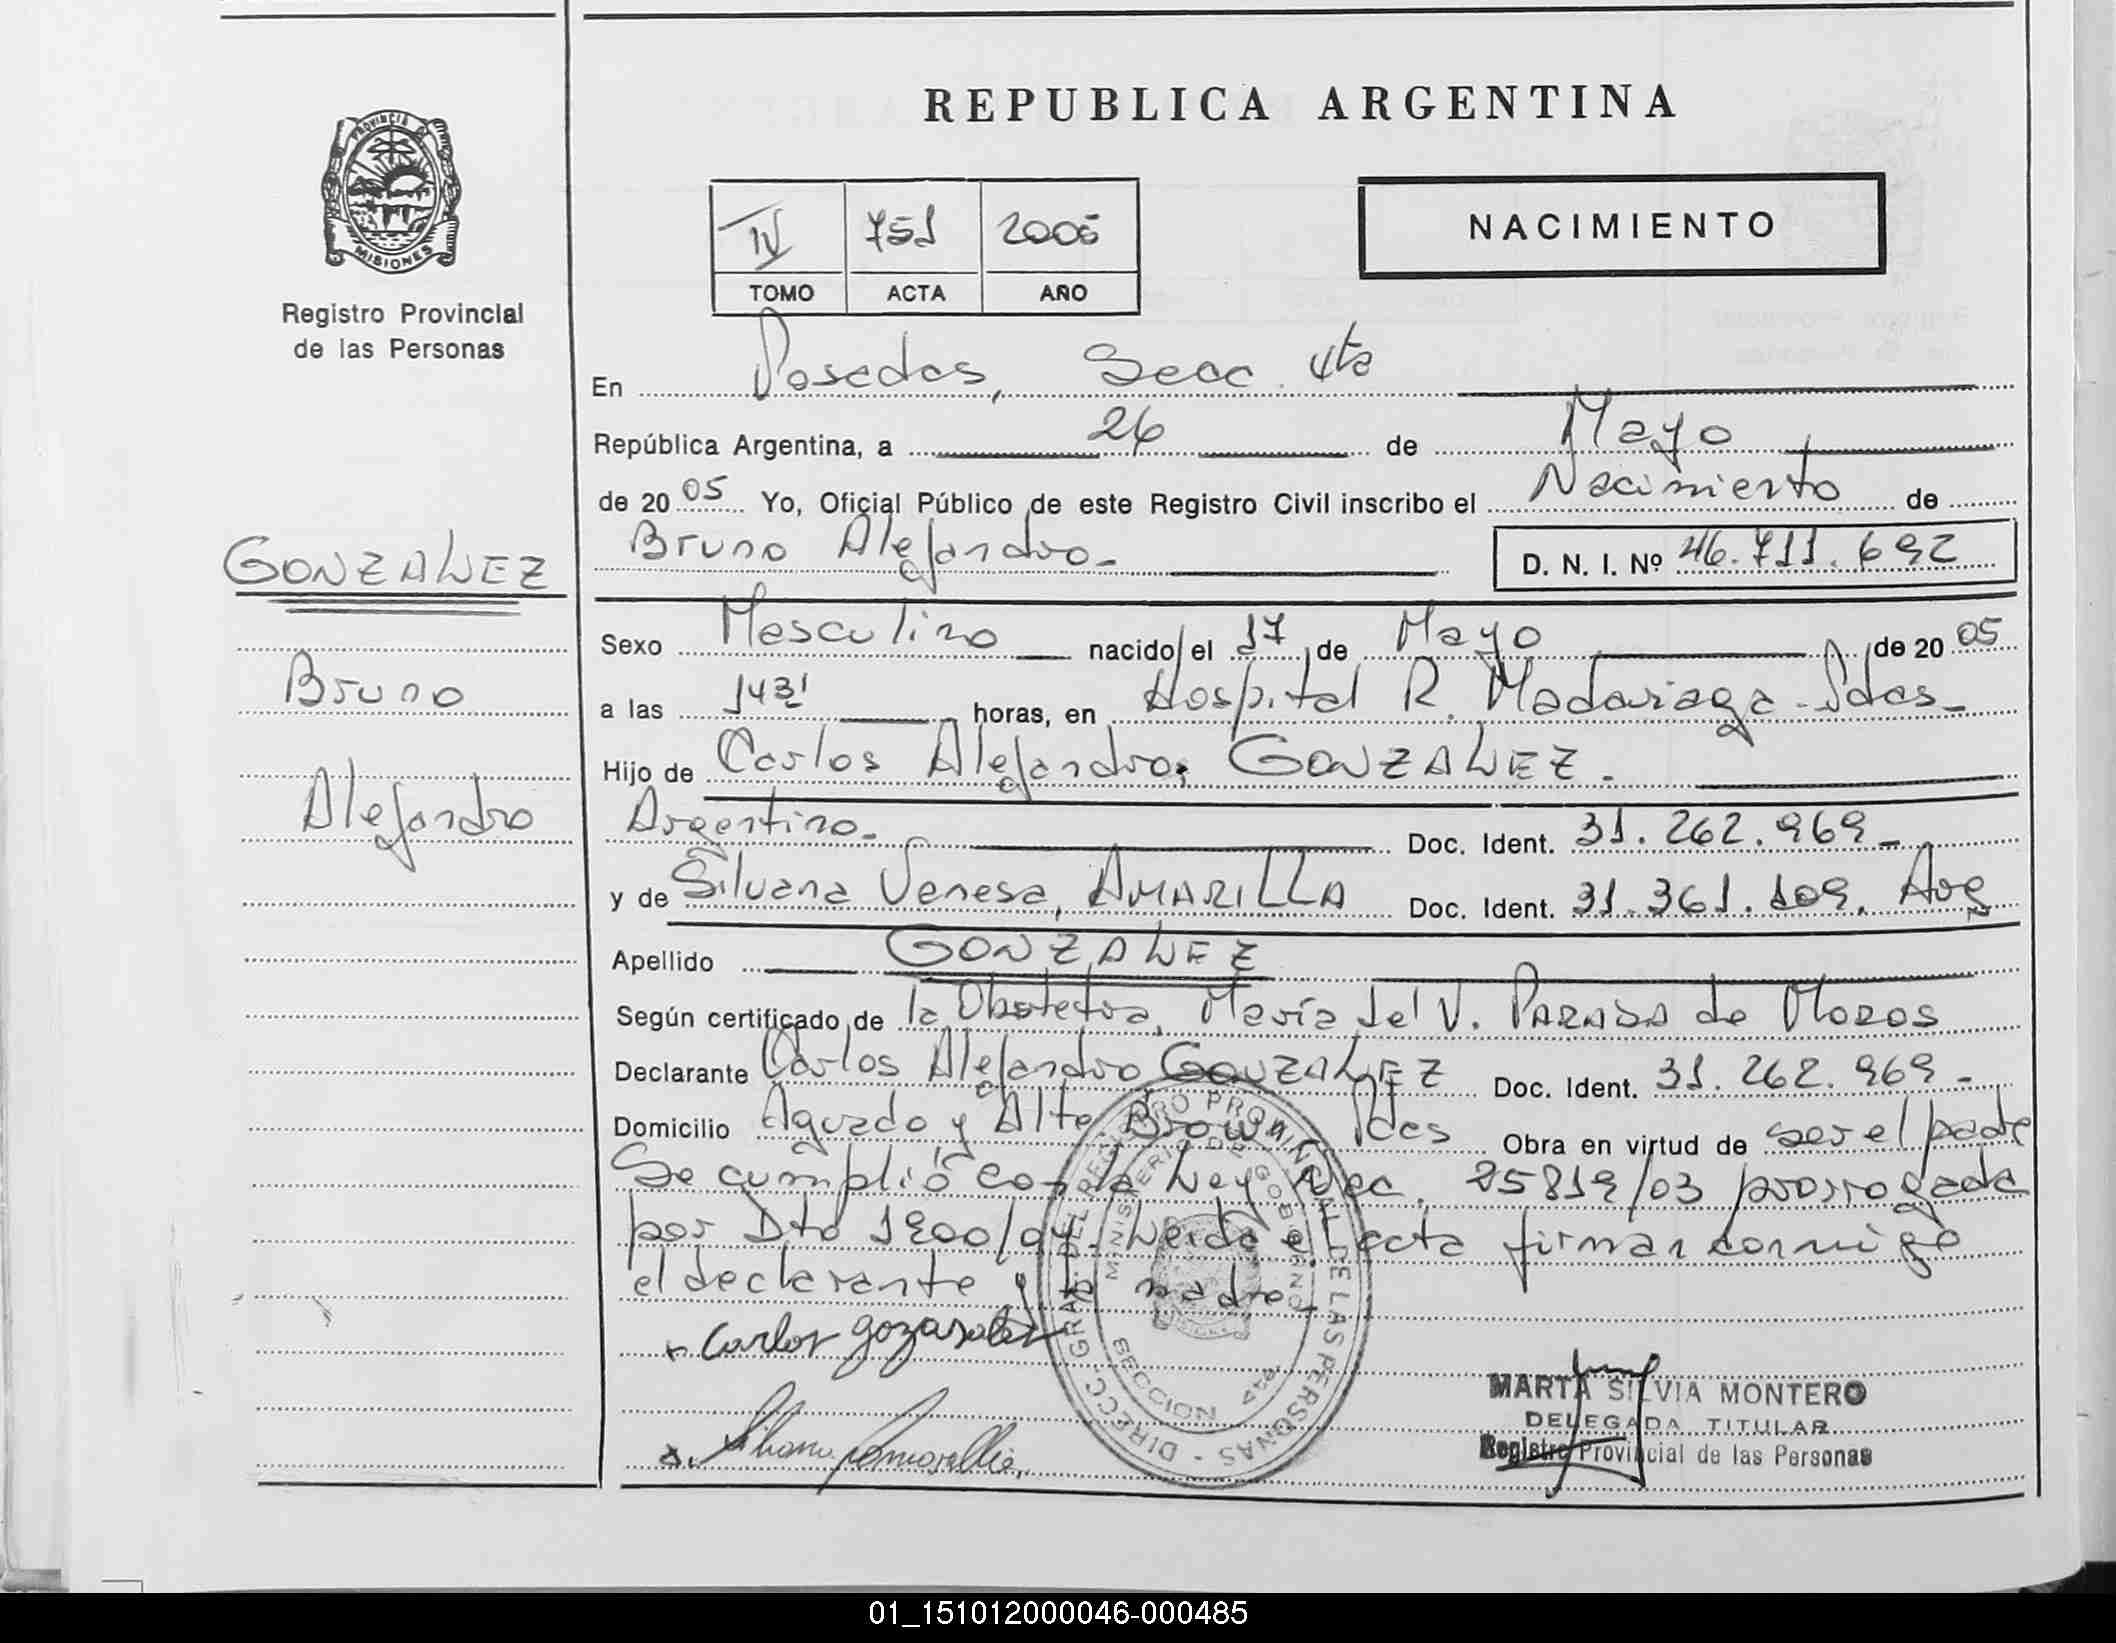 REPUBLICA ARGENTINA
PROVINCIA DE
MISIONES
Registro Provincial
de las Personas
IV 751 2005
TOMO ACTA AÑO
NACIMIENTO
En Posadas, Secc. 4ta
República Argentina, a 26 de Mayo
de 2005 Yo, Oficial Público de este Registro Civil inscribo el Nacimiento de
Bruno Alejandro- D. N. I. Nº 46.711.692
GONZALEZ
Bruno
Alejandro
Sexo Masculino nacido el 17 de Mayo de 2005
a las 1431 horas, en Hospital R. Madariaga - Pdas-
Hijo de Carlos Alejandro, GONZALEZ.
Argentino- Doc. Ident. 31.262.969-
y de Silvana Vanesa, AMARILLA Doc. Ident. 31.361.109. Arg
Apellido GONZALEZ
Según certificado de la Obstetra, María del V. PARADA de MOROS
Declarante Carlos Alejandro GONZALEZ Doc. Ident. 31.262.969-
Domicilio Aguado y Alte Brown Pdas Obra en virtud de ser el padre
Se cumplió con la Ley Nac. 25819/03 prorrogada
por Dto 1900/04. Leida el acta firman conmigo
el declarante y la madre
Carlos gozasalez
DIRECC. GRAL. DEL REGISTRO PROVINCIAL DE LAS PERSONAS -
MINISTERIO DE GOBIERNO
SECCION 4ta
MARTA SILVIA MONTERO
DELEGADA TITULAR
Registro Provincial de las Personas
01_151012000046-000485